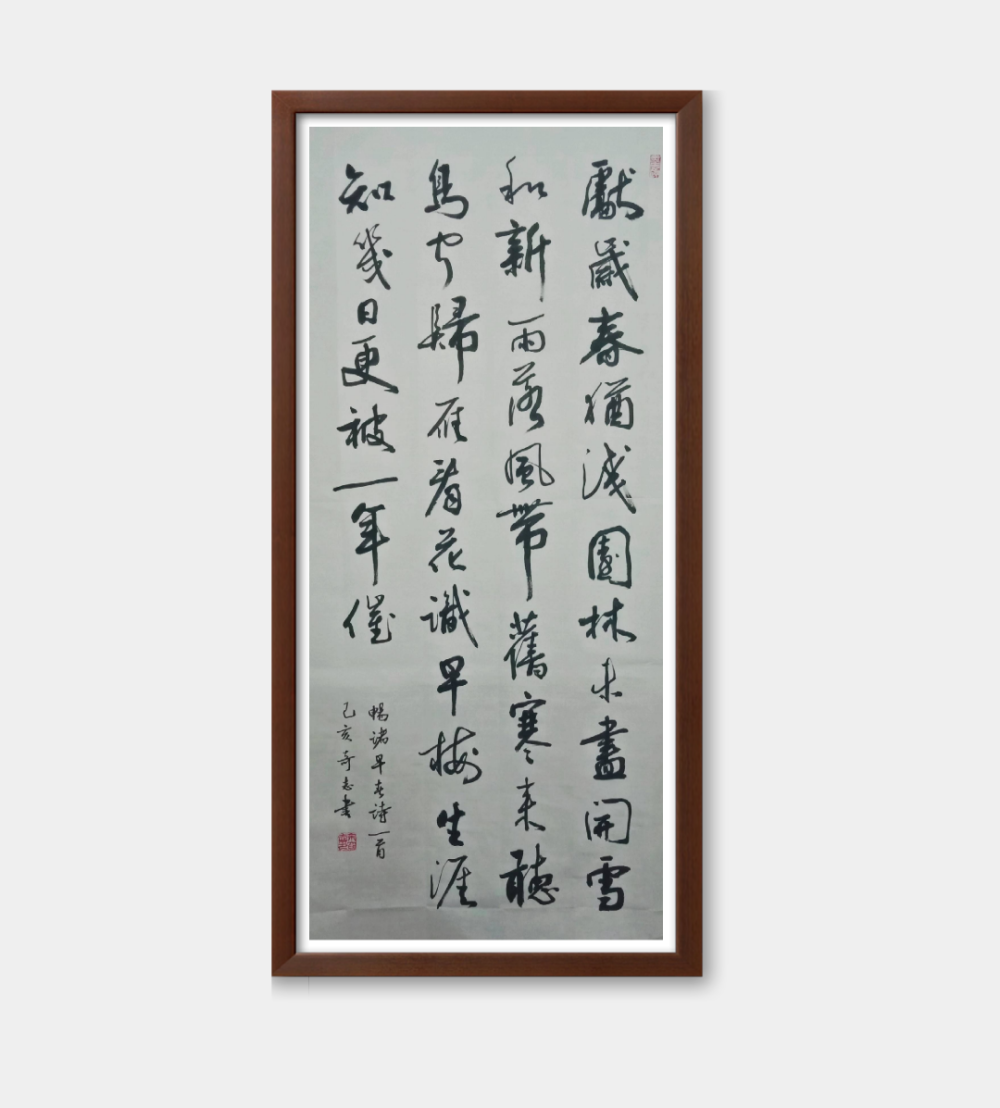 獻歲春猶淺園林未盡開雪
和新雨落風帶舊寒來聽
鳥聞歸雁看花識早梅生涯
知幾日更被一年催
暢諸早春詩一首
己亥奇志書